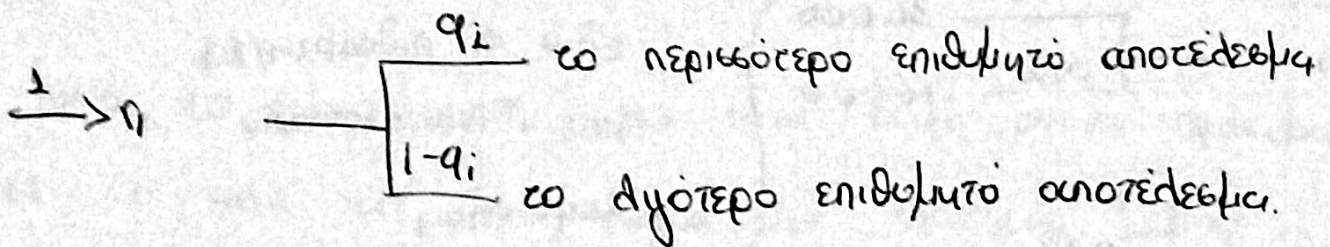 qi το περισσότερο επιθυμητό αποτέλεσμα
1 → n
1-qi το λιγότερο επιθυμητό αποτέλεσμα.